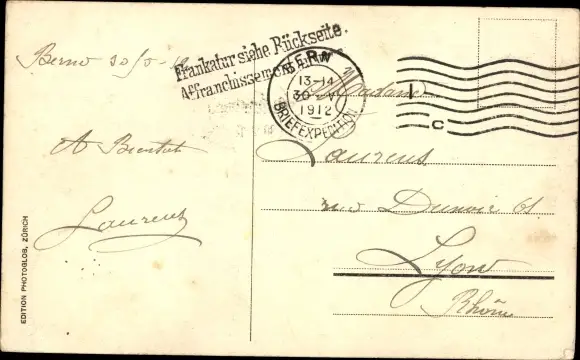 Berne 30/5-12
Frankatur siehe Rückseite.
Affranchissement au
BERN 1
13-14
30 V
1912
BRIEFEXPEDITION
C
Madame
A Bientôt
Laurens
rue Dunoir 61
Laurent
Lyon
Rhône
EDITION PHOTOGLOB, ZÜRICH